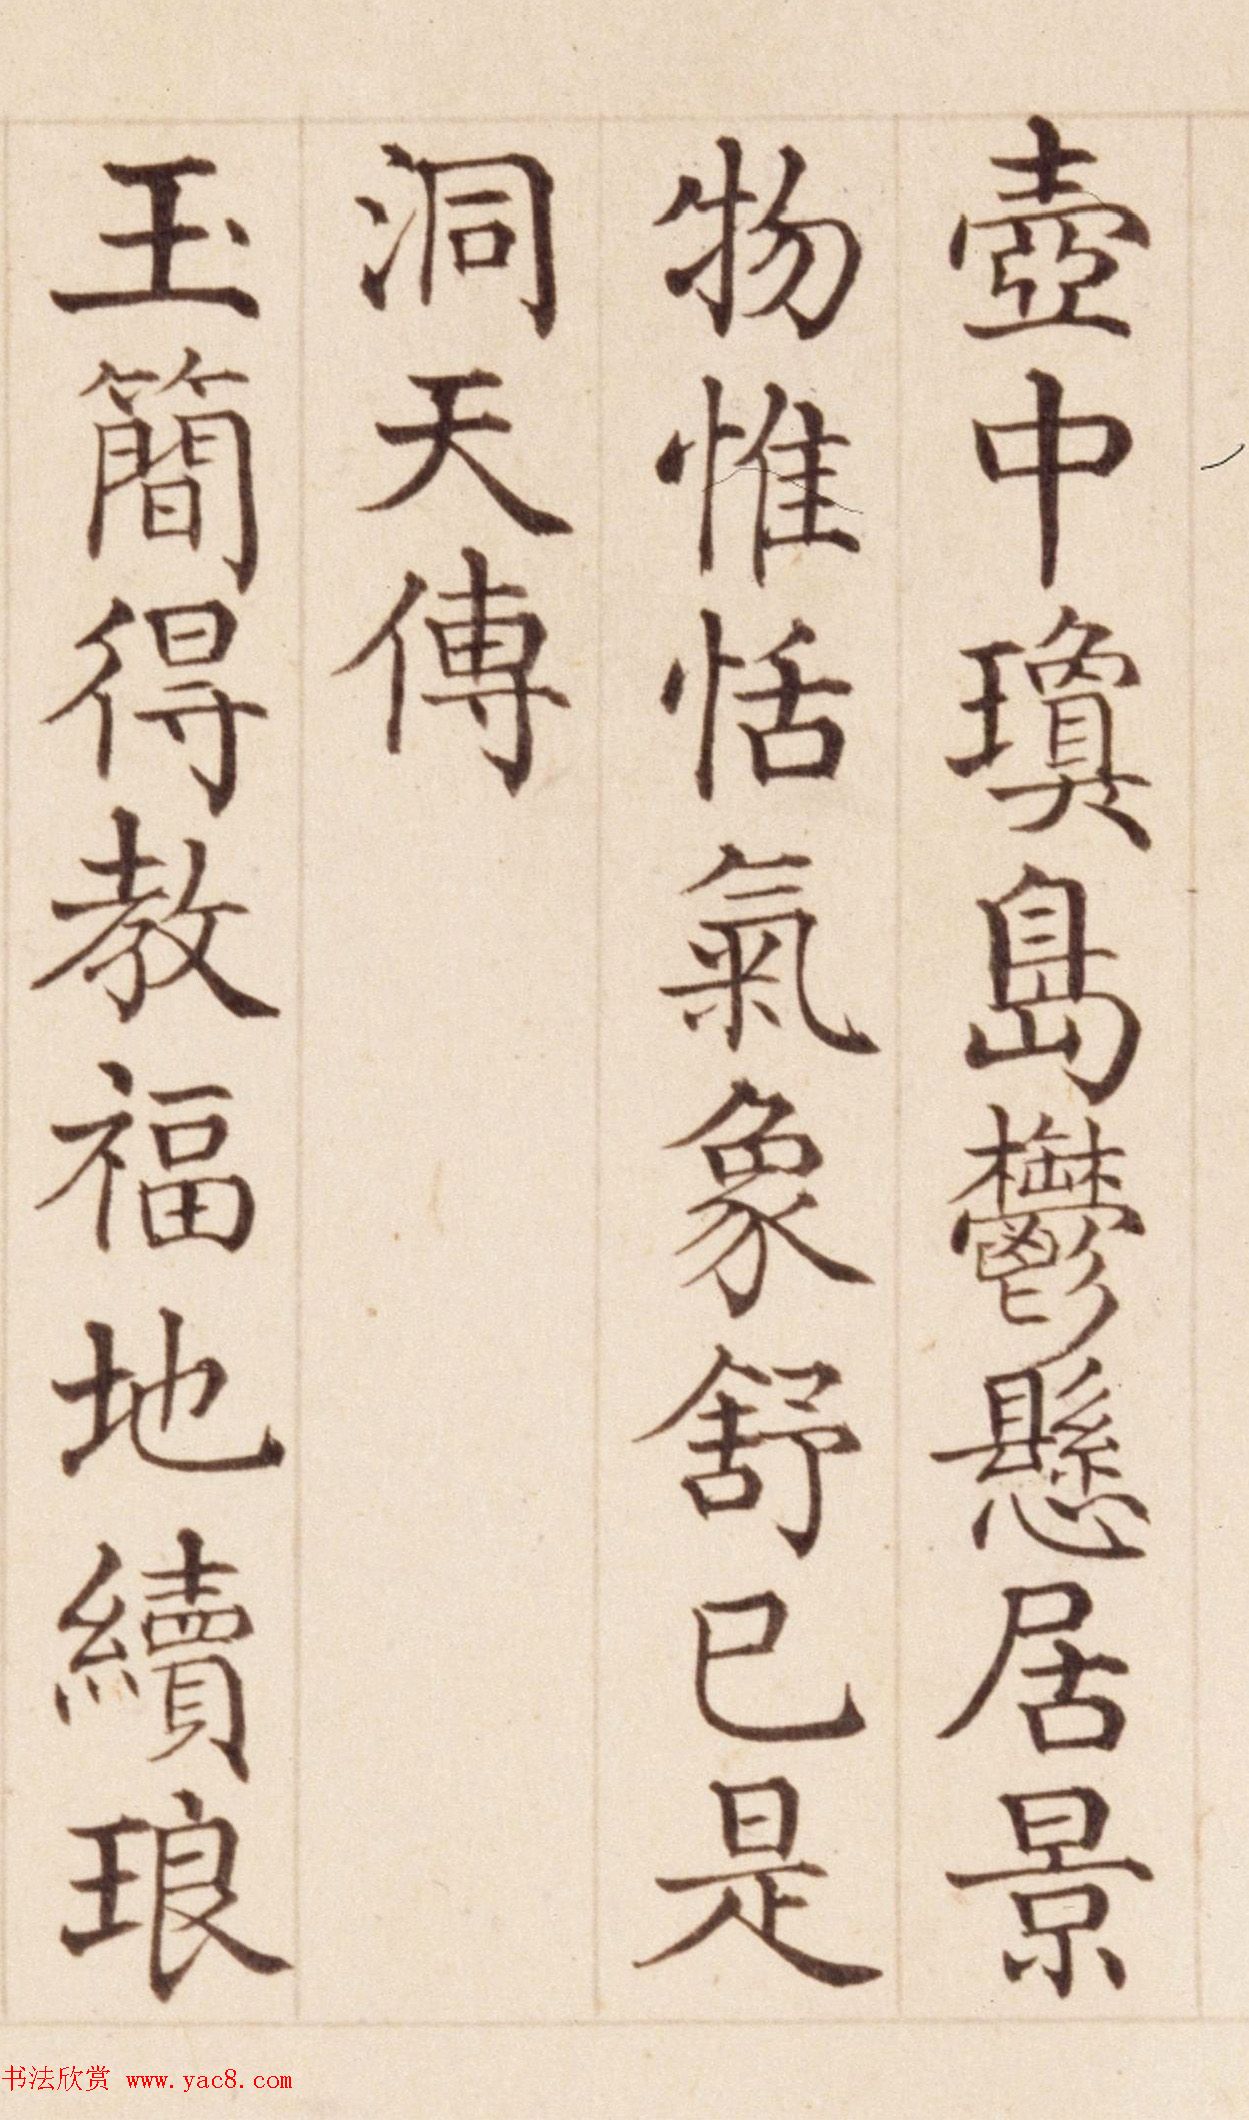 壺中瓊島鬱懸居景
物惟恬氣象舒已是
洞天傳
玉簡得教福地續琅
书法欣赏 www.yac8.com